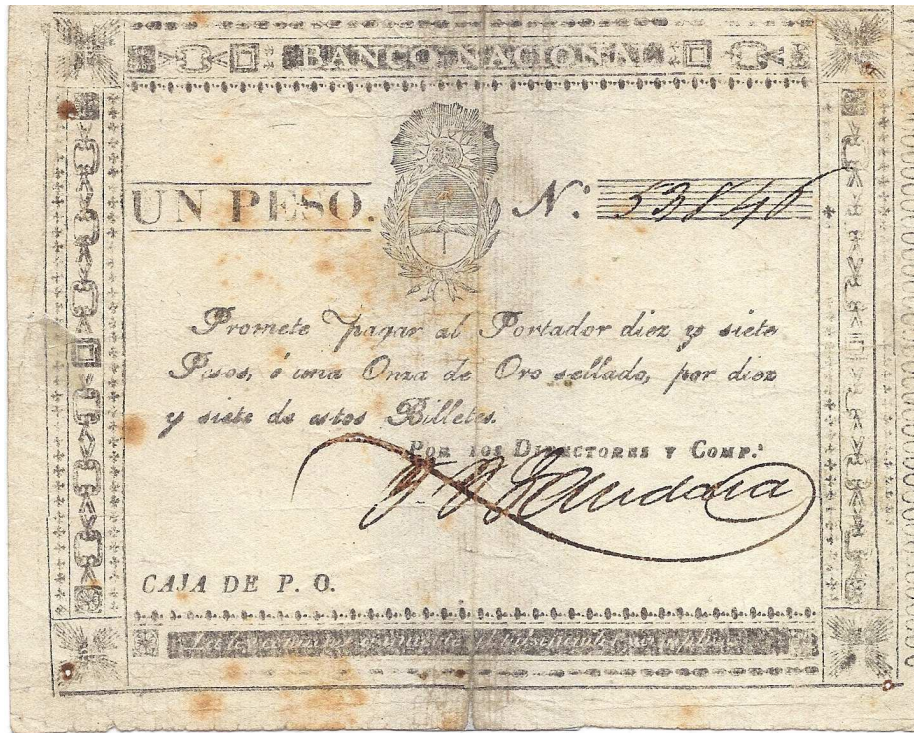 BANCO NACIONAL
UN PESO. N.: 53846
Promete pagar al Portador diez y siete
Pesos, ó una Onza de Oro sellado, por diez
y siete de estos Billetes.
POR LOS DIRECTORES Y COMP.ª
CAJA DE P. O.